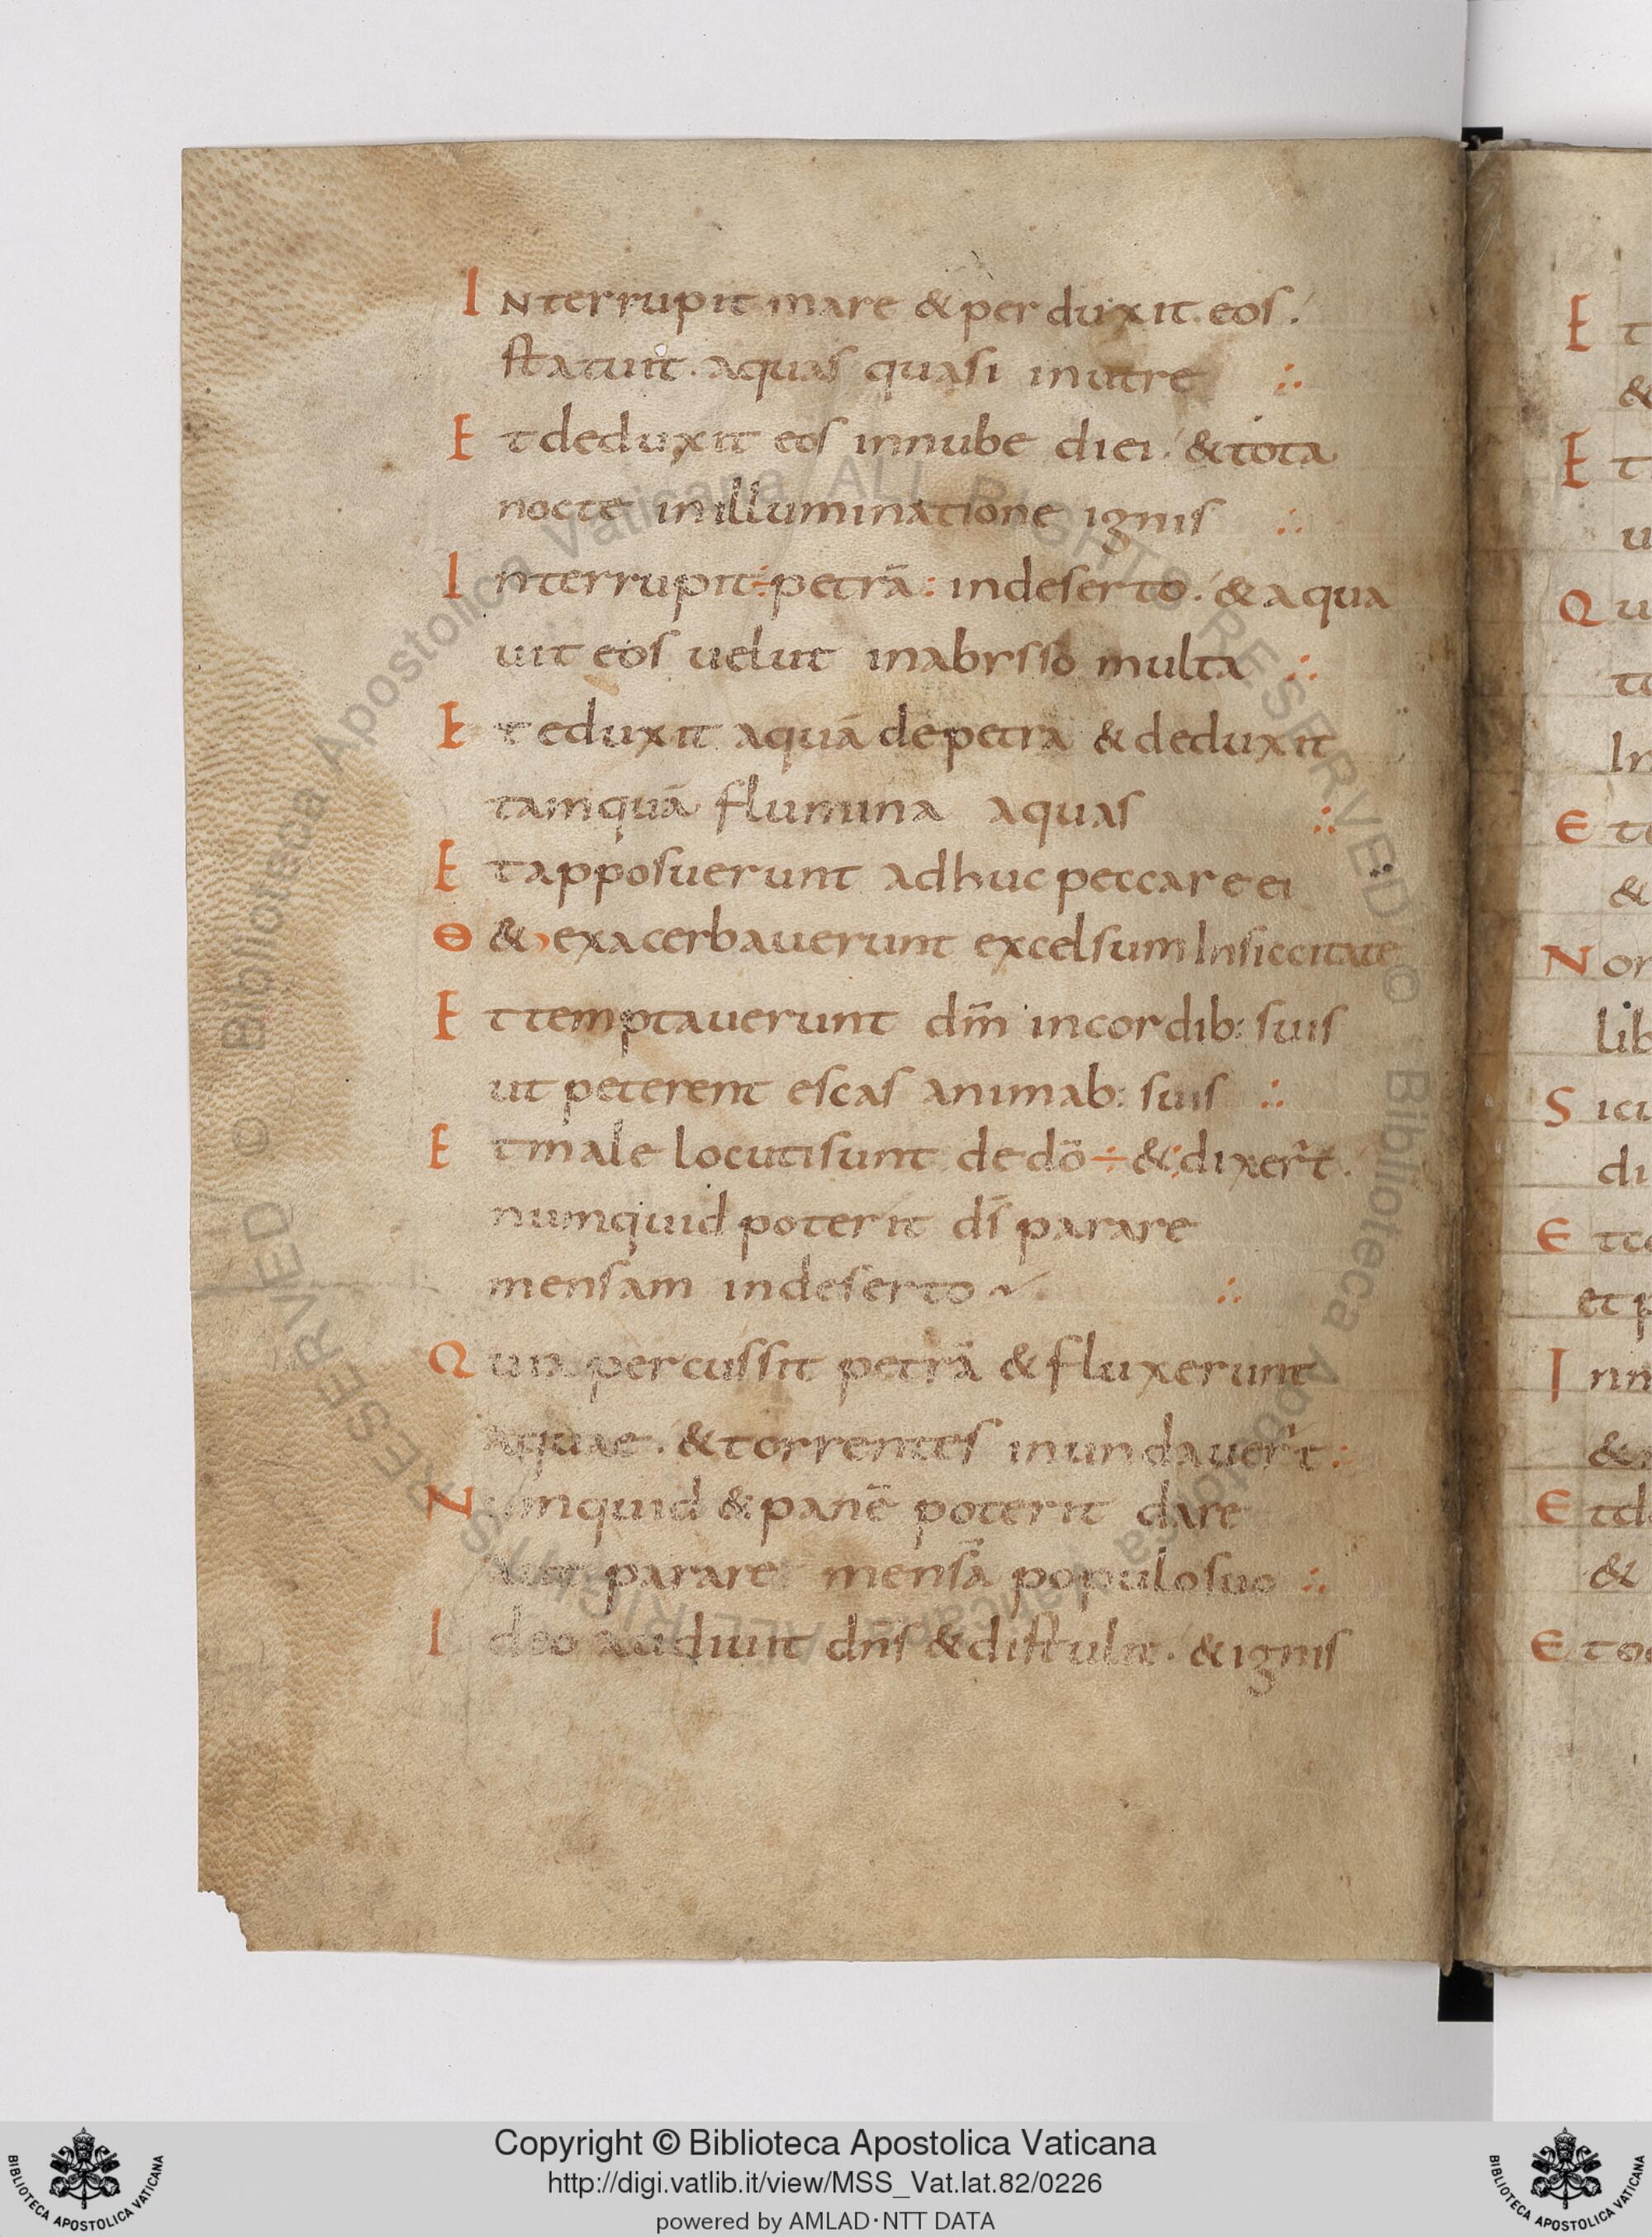 INterrupit mare & perduxit eos.
statuit. aquas quasi inutre ∴
E tdeduxit eos innube diei. & tota
nocte inilluminatione ignis ∴
I nterrupit÷petrā: indeserto. & aqua
uit eos uelut inabysso multa ∴
E teduxit aquā depetra & deduxit
tamquā flumina aquas ∴
E tapposuerunt adhuc peccare ei
Θ & exacerbauerunt excelsum Insiccitate
E t temptauerunt dm̄ incordib: suis
ut peterent escas animab: suis ∴
E tmale locutisunt de dō ÷ &:dixer̄t.
numquid poterit ds̄ parare
mensam indeserto ∴
Q uia percussit petrā & fluxerunt
aquae. & torrentes inundauer̄t:
N umquid & panē poterit dare
aut parare mensā populosuo ∴
I deo audiuit dn̄s & distulit. & ignis
E t
&
E t
u
Q u
to
In
E t
&
N on
lib
S icu
di
E t
et p
I nn
&
E td
&
E t
Copyright © Biblioteca Apostolica Vaticana
http://digi.vatlib.it/view/MSS_Vat.lat.82/0226
powered by AMLAD·NTT DATA
BIBLIOTECA APOSTOLICA VATICANA
BIBLIOTECA APOSTOLICA VATICANA
© Biblioteca Apostolica Vaticana ALL RIGHTS RESERVED © Biblioteca Apostolica Vaticana ALL RIGHTS RESERVED